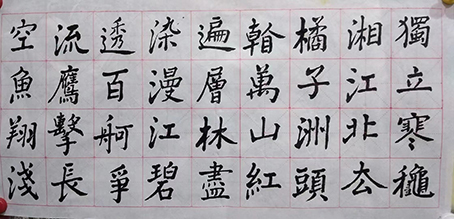 獨立寒穐
湘江北厺
橘子洲頭
看萬山紅
遍層林盡
染漫江碧
透百舸爭
流鷹擊長
空魚翔淺